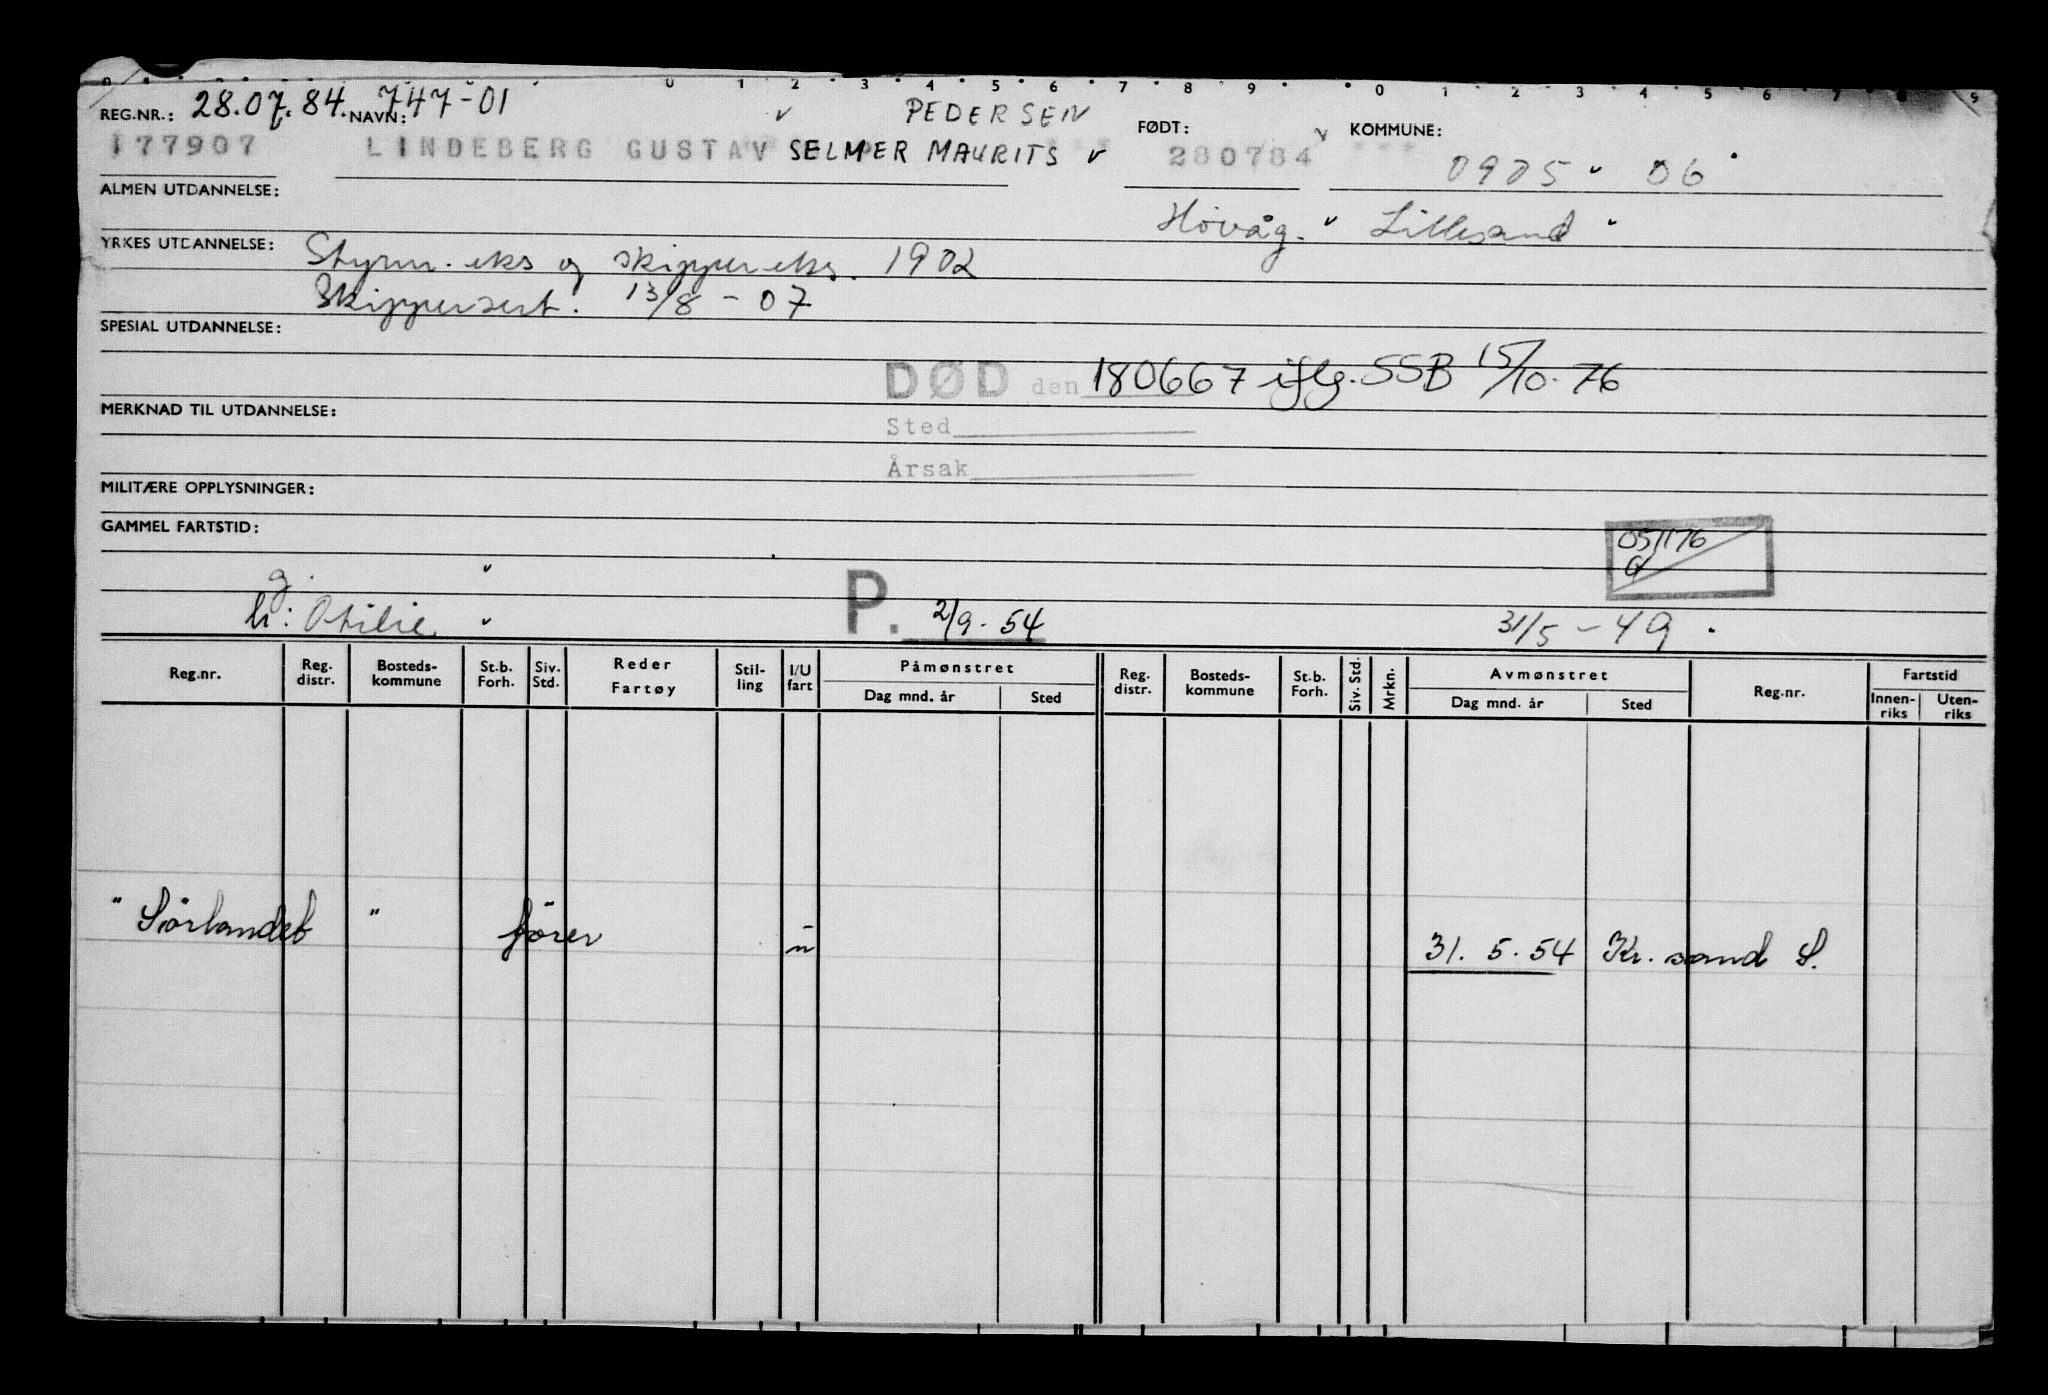 REG.NR.: 28.07.84. NAVN: 747-01 PEDERSEN FØDT: KOMMUNE:
177907 LINDEBERG GUSTAV SELMER MAURITS 280784 *** 0905 06
ALMEN UTDANNELSE:
Høvåg. Lillesand
YRKES UTDANNELSE: Styrm. eks og skippereks. 1902
Skippersert. 13/8 - 07
SPESIAL UTDANNELSE:
DØD den 180667 iflg. SSB 15/10. 76
MERKNAD TIL UTDANNELSE:
Sted
Årsak
MILITÆRE OPPLYSNINGER:
GAMMEL FARTSTID:
051176
g.
h: Otilie P. 2/9. 54 31/5 - 49.
Reg.nr. Reg. distr. Bosteds- kommune St.b. Forh. Siv. Std. Reder Fartøy Stil- ling I/U fart Påmønstret Reg. distr. Bosteds- kommune St.b. Forh. Siv. Std. Mrkn. Avmønstret Reg.nr. Fartstid
Dag mnd. år Sted Dag mnd. år Sted Innen- riks Uten- riks
"Sörlandet" förer u 31. 5. 54 Kr. sand S.